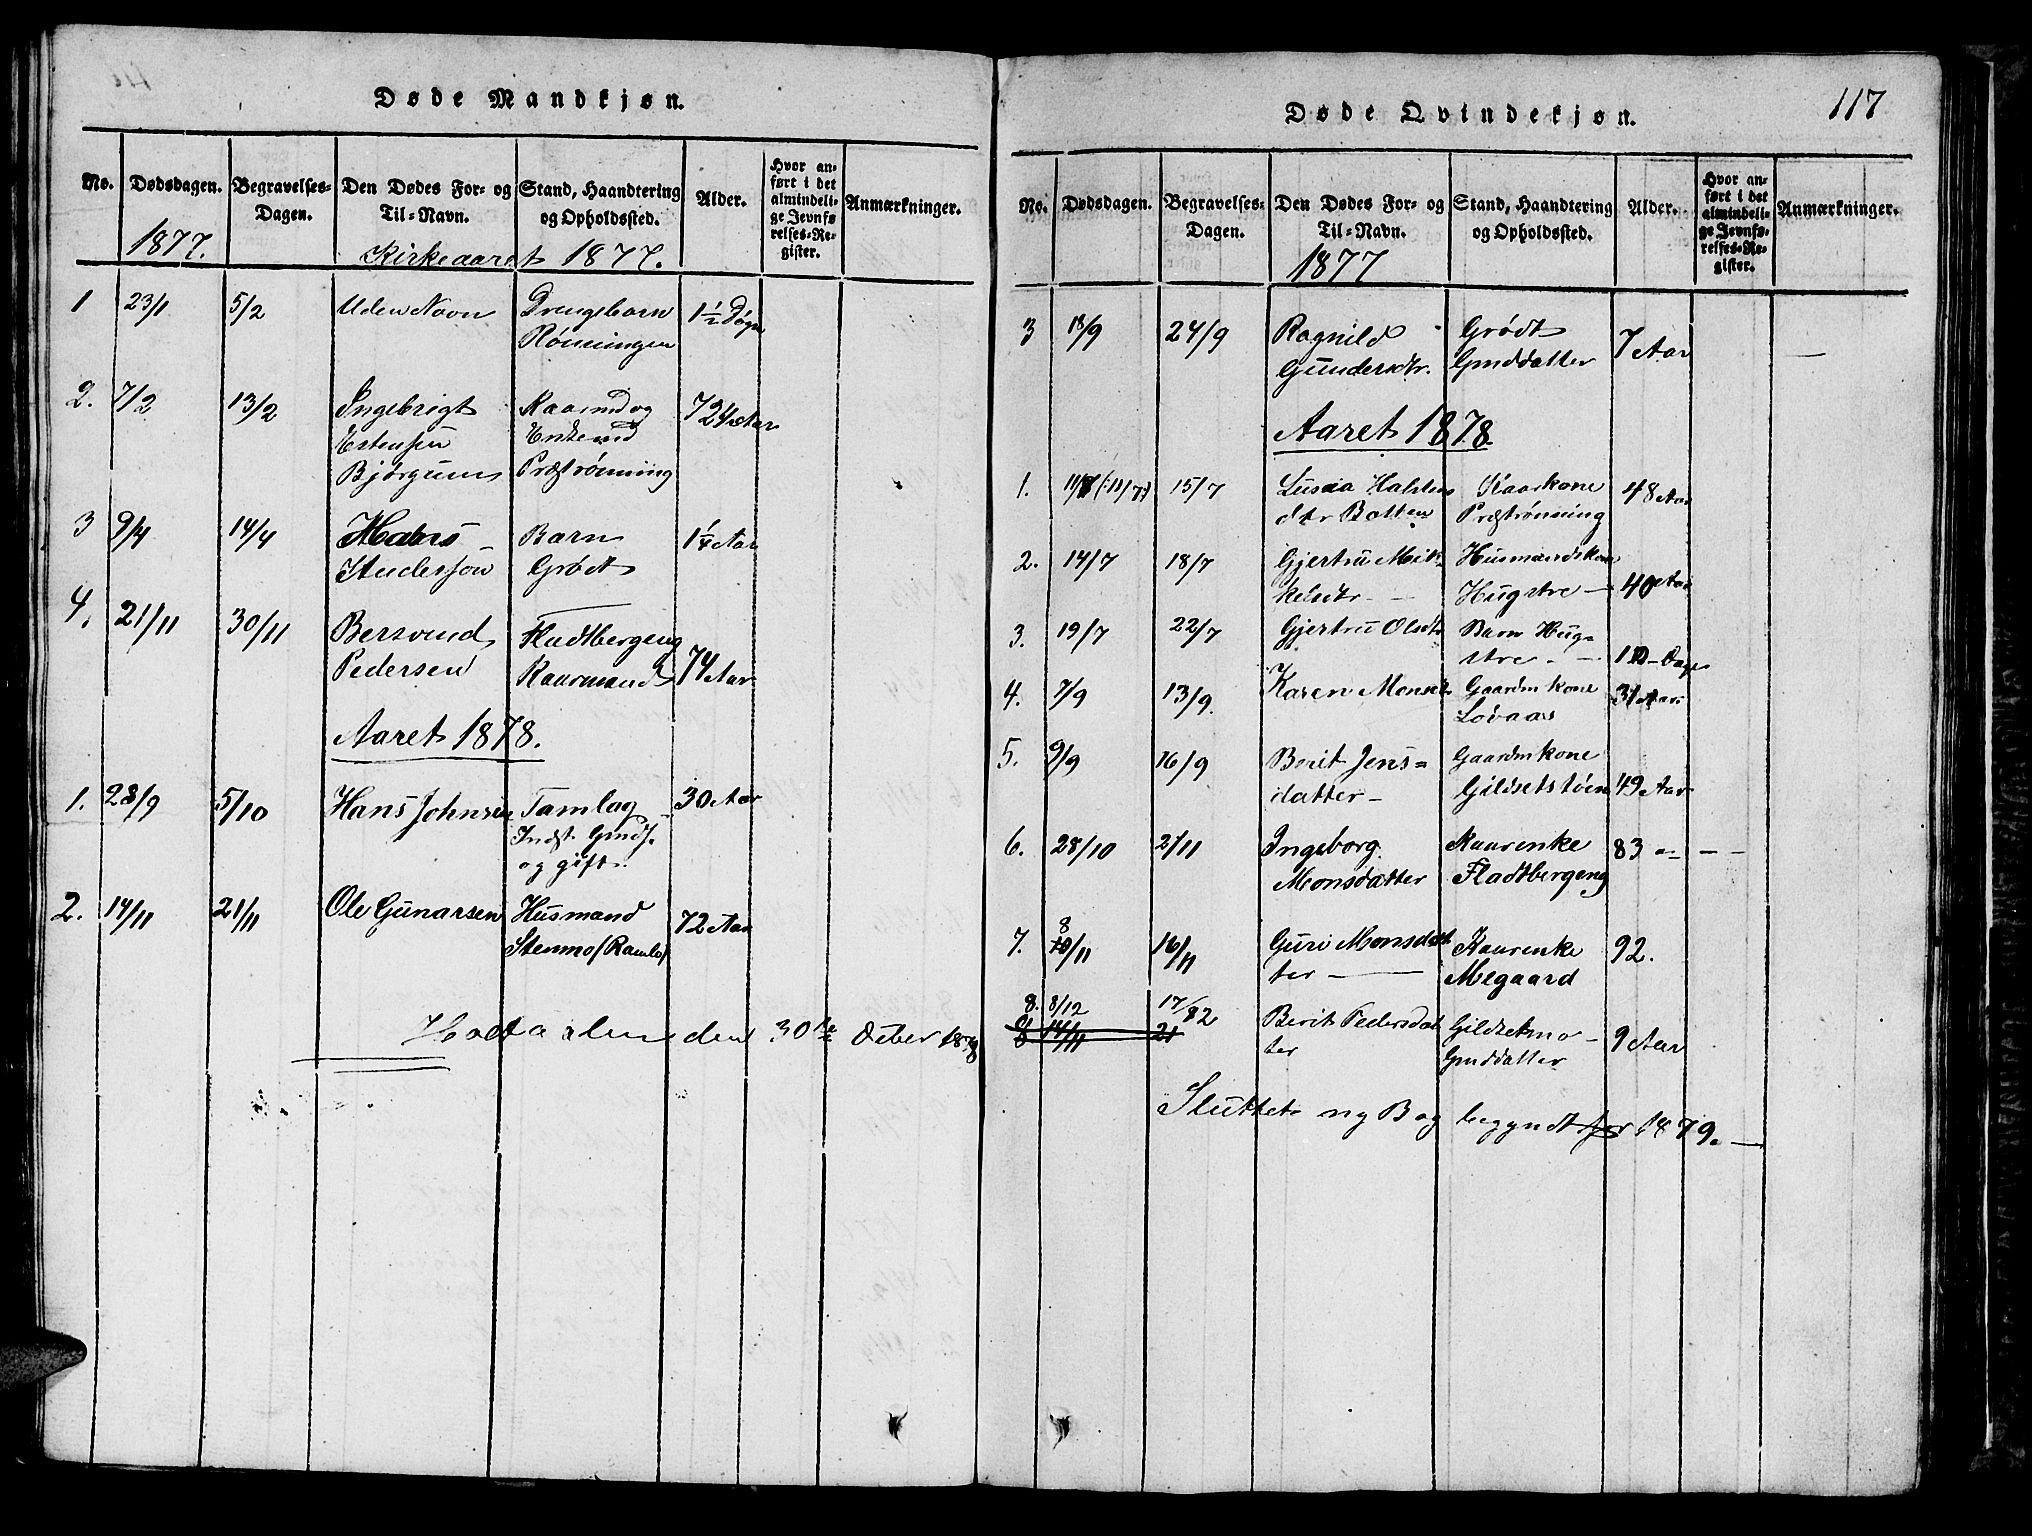 Døde Mandkjøn.
No. Dødsdagen. Begravelses-Dagen. Den Dødes For- og Til-Navn. Stand, Haandtering og Opholdssted. Alder. Hvor anført i det almindelige Jevnførelses-Register. Anmærkninger.
1877. Kirkeaaret 1877.
1 23/1 5/2 Uden Navn Drengebarn 1½ Døgn
Rønningen
2. 7/2 13/2 Ingebrigt Kaarmd og 72 Aar
Estensen Enkemd
Bjørgum Præstrønning
3 9/4 14/4 Hans Barn 1¼ Aar
Andersen Grødt
4. 21/11 30/11 Bersvend Fladtbergeng
Pedersen Kaarmand 74 Aar
Aaret 1878.
1. 28/9 5/10 Hans Johnsen Tamlag 30 Aar
Indst. Gmds.
og gift.
2. 14/11 21/11 Ole Gunarsen Husmand 72 Aar
Stenmo/Ramlo/
Holtaalen den 30te Octber 1878
117
Døde Qvindekjøn.
No. Dødsdagen. Begravelses-Dagen. Den Dødes For- og Til-Navn. Stand, Haandtering og Opholdssted. Alder. Hvor anført i det almindelige Jevnførelses-Register. Anmærkninger.
1877
3 18/9 24/9 Ragnild Grødt 7 Aar —
Gundersdtr. Gmddatter
Aaret 1878.
1. 11/7 (:11/7:) 15/7 Lusia Halsten Kaarkone 48 Aar
dtr Botten Præstrønning
2. 14/7 18/7 Gjertru Mik- Husmandskone 40 Aar
kelsdtr — Hugstre —
3. 19/7 22/7 Gjertru Olsdtr Barn Hug-
stre. — Dage
4. 7/9 13/9. Karen Monsdtr Gaardmkone 31 Aar
Lovaas
5. 9/9 16/9 Berit Jens= Gaardmkone
datter — Gildsetstøen 49 Aar
6. 28/10 2/11 Ingeborg Kaarenke 83 — — —
Monsdatter Fladtbergeng
7. 8/11 16/11 Guri Monsdat Kaarenke 92.
ter — Megaard
8. 8/12 17/12 Berit Pedersdat Gildsetmo — 9 Aar
8 14/11 21
ter Gmddatter
Sluttet ny Bog begyndt for 1879. —